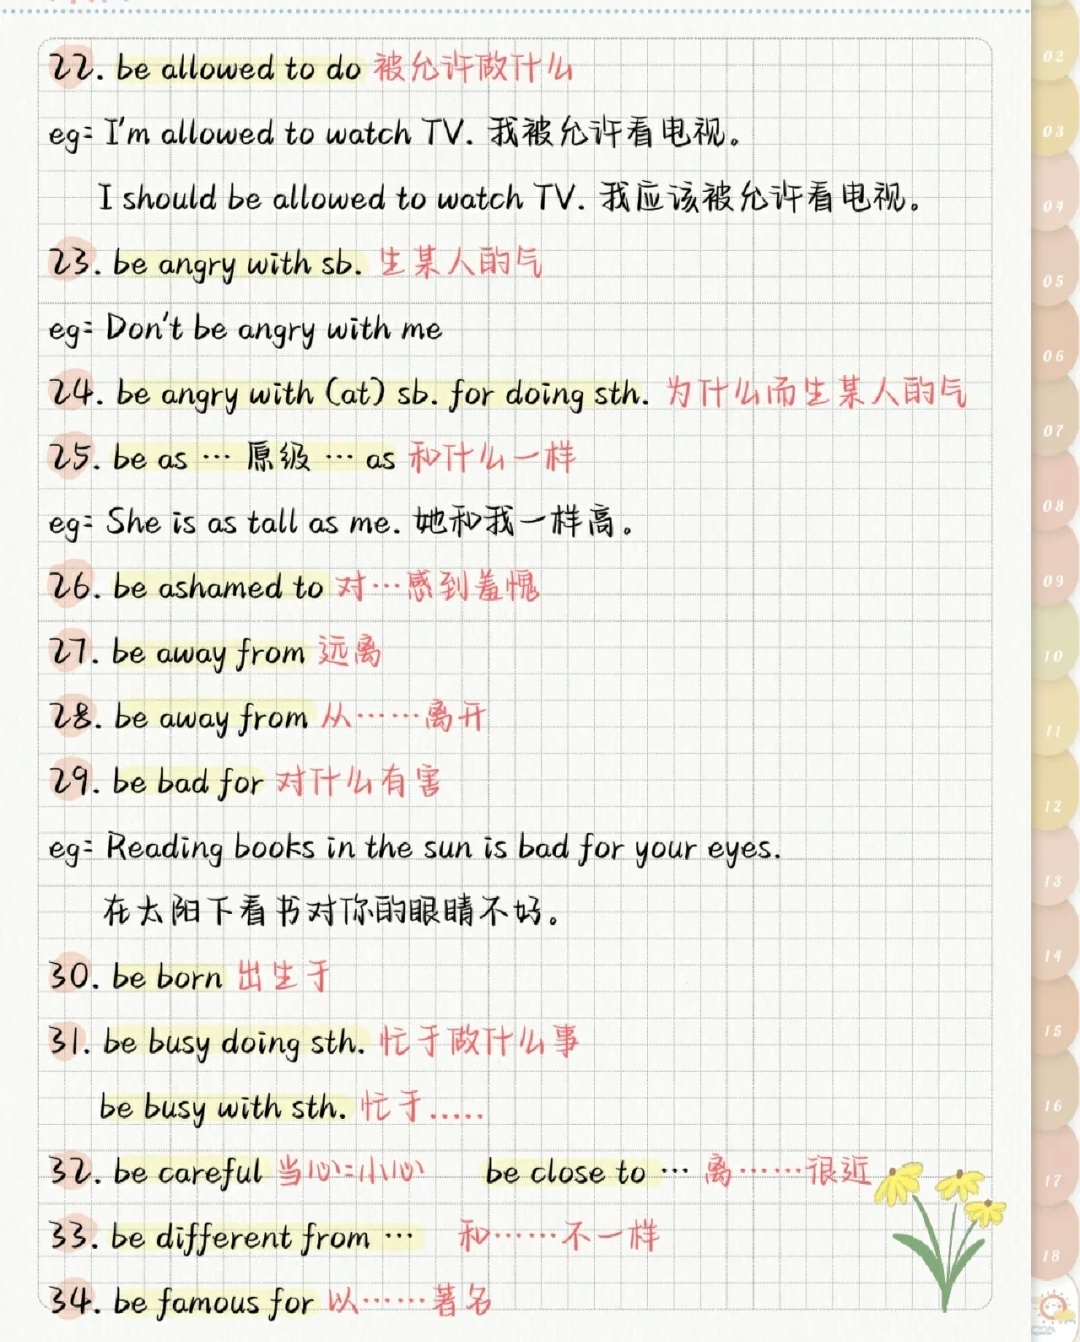 22. be allowed to do 被允许做什么
eg: I'm allowed to watch TV. 我被允许看电视。
I should be allowed to watch TV. 我应该被允许看电视。
23. be angry with sb. 生某人的气
eg: Don't be angry with me
24. be angry with (at) sb. for doing sth. 为什么而生某人的气
25. be as … 原级 … as 和什么一样
eg: She is as tall as me. 她和我一样高。
26. be ashamed to 对…感到羞愧
27. be away from 远离
28. be away from 从……离开
29. be bad for 对什么有害
eg: Reading books in the sun is bad for your eyes.
在太阳下看书对你的眼睛不好。
30. be born 出生于
31. be busy doing sth. 忙于做什么事
be busy with sth. 忙于.....
32. be careful 当心=小心 be close to … 离……很近
33. be different from … 和……不一样
34. be famous for 以……著名
02
03
04
05
06
07
08
09
10
11
12
13
14
15
16
17
18